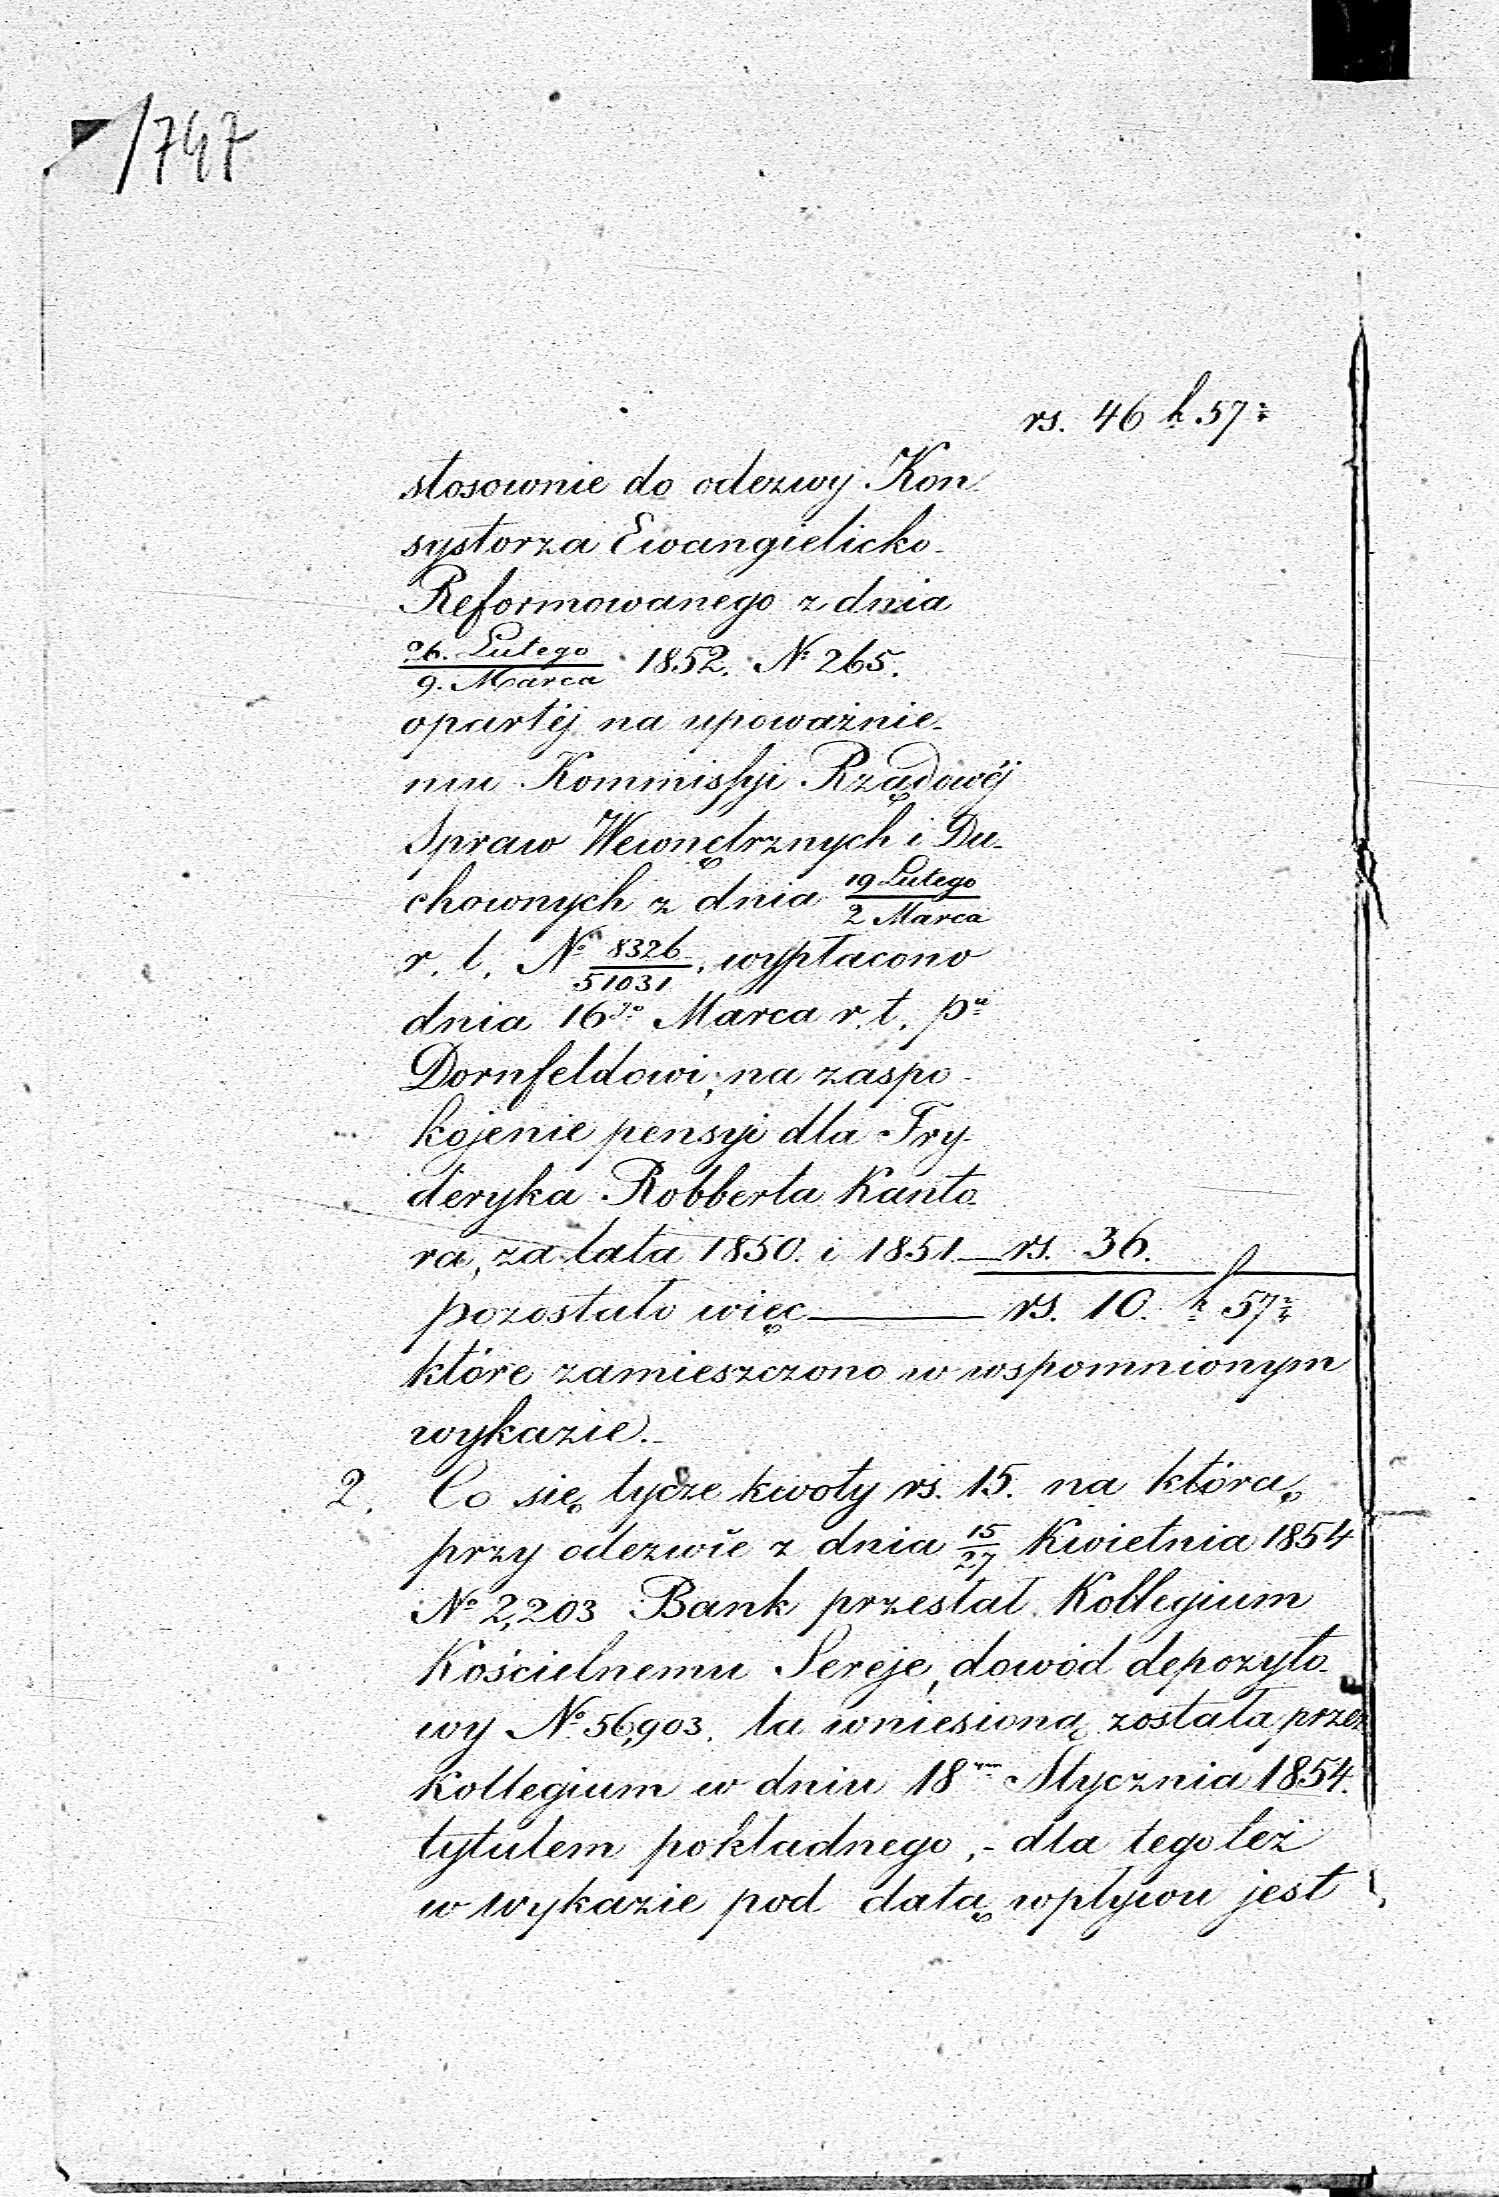 1747
rs. 46 k. 57½
stosownie do odezwy Kon-
systorza Ewangielicko-
Reformowanego z dnia
26. Lutego / 9. Marca 1852. № 265.
opartéj na upoważnie-
niu Kommissyi Rządowéj
Spraw Wewnętrznych i Du-
chownych z dnia 19 Lutego / 2 Marca
r. t. № 8326/51031, wypłacono
dnia 16go Marca r. t. Pu
Dornfeldowi, na zaspo-
kojenie pensyi dla Fry-
deryka Robberta Kanto-
ra, za lata 1850. i 1851.— rs. 36.
pozostało więc — rs. 10. k. 57½
które zamieszczono w wspomnionym
wykazie.—
2. Co się tycze kwoty rs. 15. na którą
przy odezwie z dnia 15/27 Kwietnia 1854
№ 2,203 Bank przesłał Kollegium
Kościelnemu Sereje, dowód depozyto-
wy № 56,903. ta wniesioną została przez
Kollegium w dniu 18ym Stycznia 1854.
tytułem pokładnego,- dla tego też
w wykazie pod datą wpływu jest